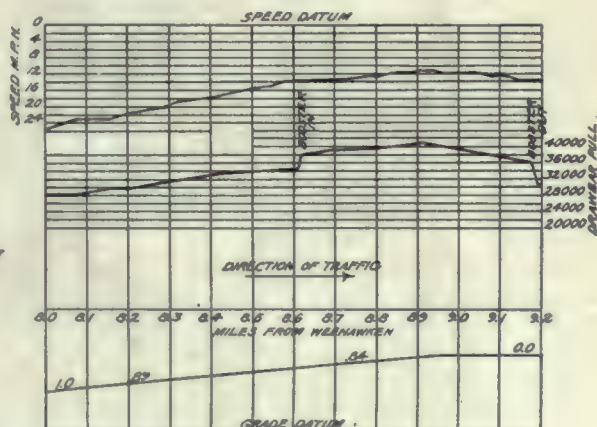 SPEED DATUM
SPEED M.P.H.
0
4
8
12
16
20
24
BOOSTER IN
BOOSTER OUT
DRAWBAR PULL
40000
36000
32000
28000
24000
20000
DIRECTION OF TRAFFIC
8.0 8.1 8.2 8.3 8.4 8.5 8.6 8.7 8.8 8.9 9.0 9.1 9.2
MILES FROM WEEHAWKEN
1.0 .89 .84 0.0
GRADE DATUM